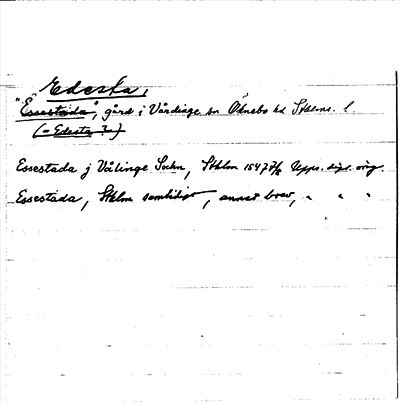 Edesta,
"Essestada", gård i Vårdinge sn Öknebo hd Sthlms l.
(= Edesta?)
Essestada j Vålinge Sochn, Sthlm 1547 7/8 Upps. dipl. orig.
Essestada, Sthlm samtidigt, annat brev, " " "